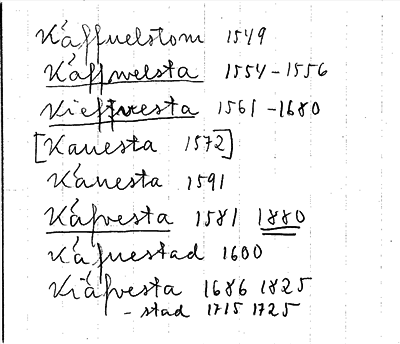 Käffuelstom 1549
Käffwelsta 1554-1556
Kieffwesta 1561-1680
[Kauesta 1572]
Käuesta 1591
Käfvesta 1581 1880
Käfuestad 1600
Kiäfvesta 1686 1825
- stad 1715 1725